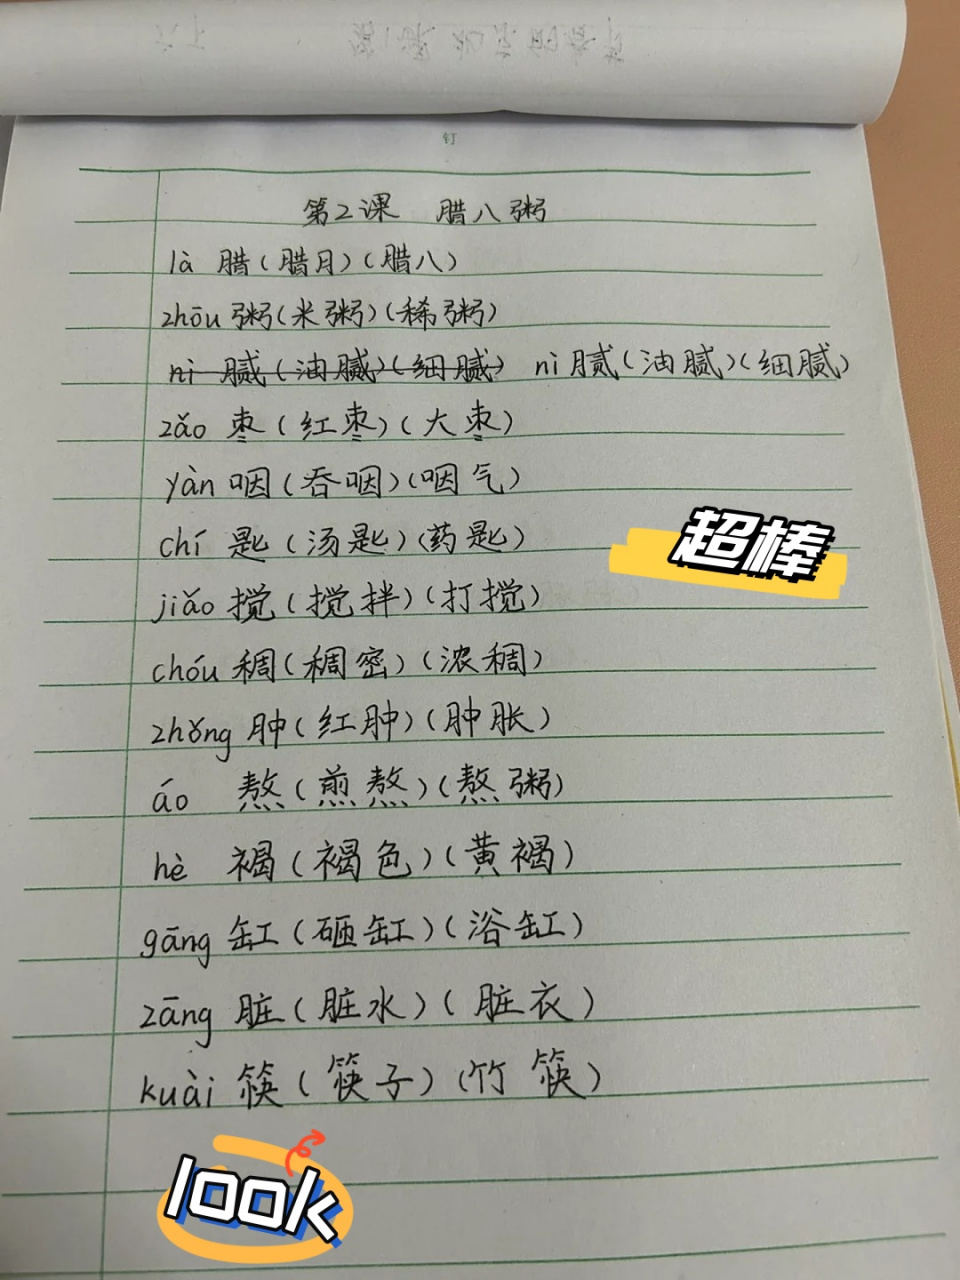 钉
第2课 腊八粥
là 腊(腊月)(腊八)
zhōu 粥(米粥)(稀粥)
nì 腻(油腻)(细腻) nì 腻(油腻)(细腻)
zǎo 枣(红枣)(大枣)
yàn 咽(吞咽)(咽气)
chí 匙(汤匙)(药匙)
超棒
jiǎo 搅(搅拌)(打搅)
chóu 稠(稠密)(浓稠)
zhǒng 肿(红肿)(肿胀)
áo 熬(煎熬)(熬粥)
hè 褐(褐色)(黄褐)
gāng 缸(砸缸)(浴缸)
zāng 脏(脏水)(脏衣)
kuài 筷(筷子)(竹筷)
look